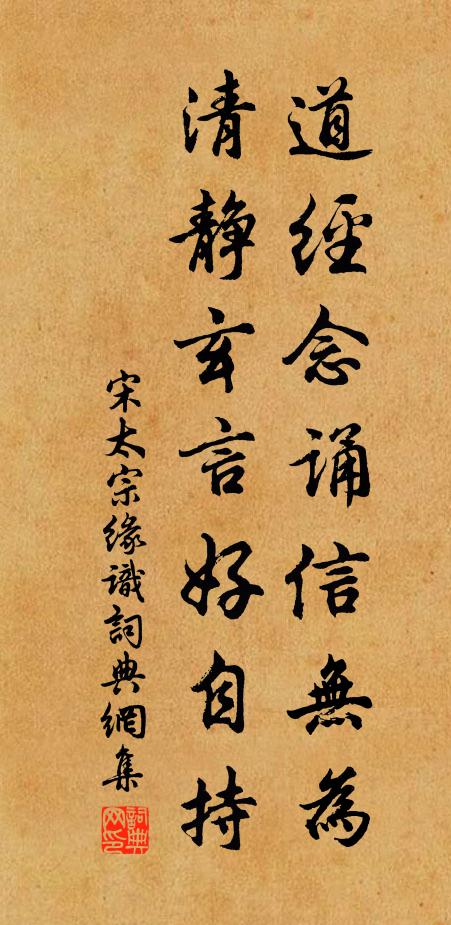 道經念誦信無為
清靜玄言好自持
宋太宗緣識詞典網集
詞典網印